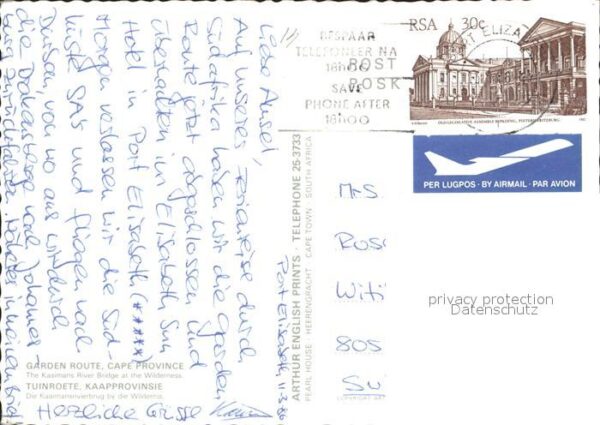 Port Elisabeth, 11.3.86
Liebe Annel,
Auf unserer Ferienreise durch
Südafrika haben wir die Garden
Route jetzt abgeschlossen und
übernachten im Elisabeth Sun
Hotel in Port Elisabeth (*****)
Morgen verlassen wir die Süd-
küste SAs und fliegen nach
Durban, von wo aus wir durch
die Drakensberge nach Johannes-
Herzliche Grüsse
GARDEN ROUTE, CAPE PROVINCE
The Kaaimans River Bridge at the Wilderness.
TUINROETE, KAAPPROVINSIE
Die Kaaimansrivierbrug by die Wildernis.
ARTHUR ENGLISH PRINTS · TELEPHONE 25-3733
PEARL HOUSE · HEERENGRACHT · CAPE TOWN · SOUTH AFRICA
COPYRIGHT ART
BESPAAR
TELEFONEER NA
18h00
SAVE
PHONE AFTER
18h00
POST
POSK
RT ELIZA
RSA 30c
OLD LEGISLATIVE ASSEMBLY BUILDING, PIETERMARITZBURG
1982
PER LUGPOS · BY AIRMAIL · PAR AVION
Mrs
Rosi
Witi
805
Sw
privacy protection
Datenschutz